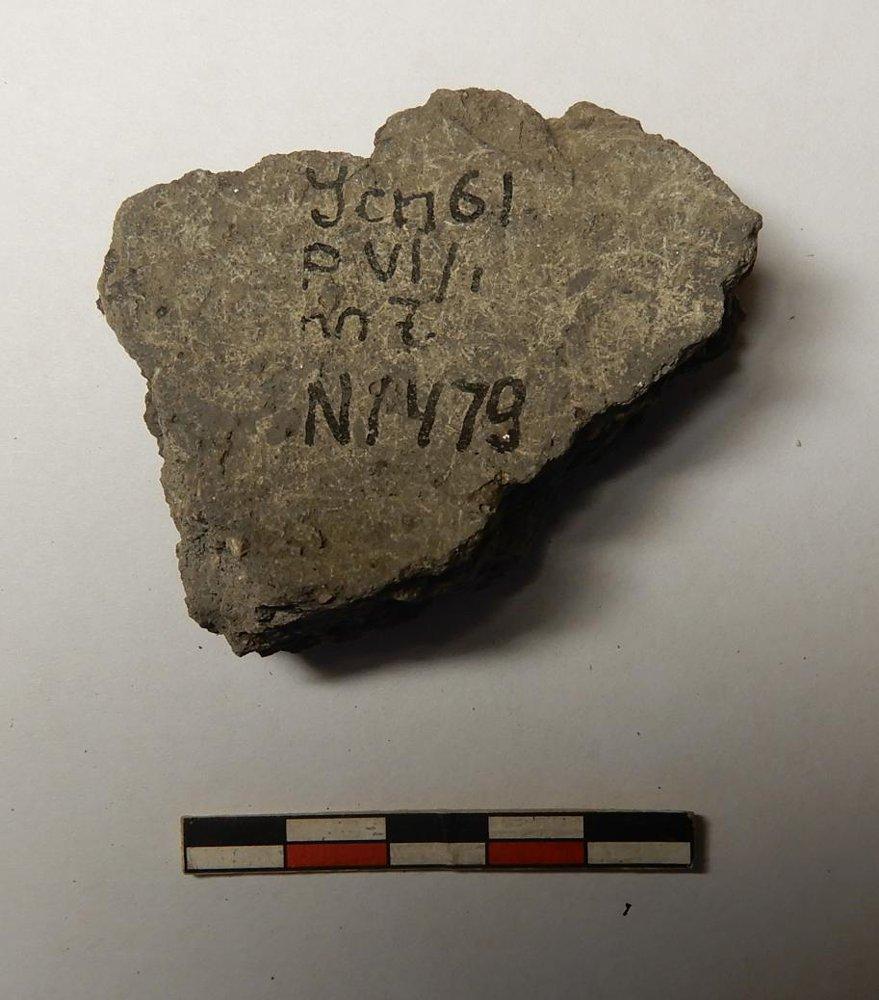 Усп 61
Р VI/1
7.
N1479